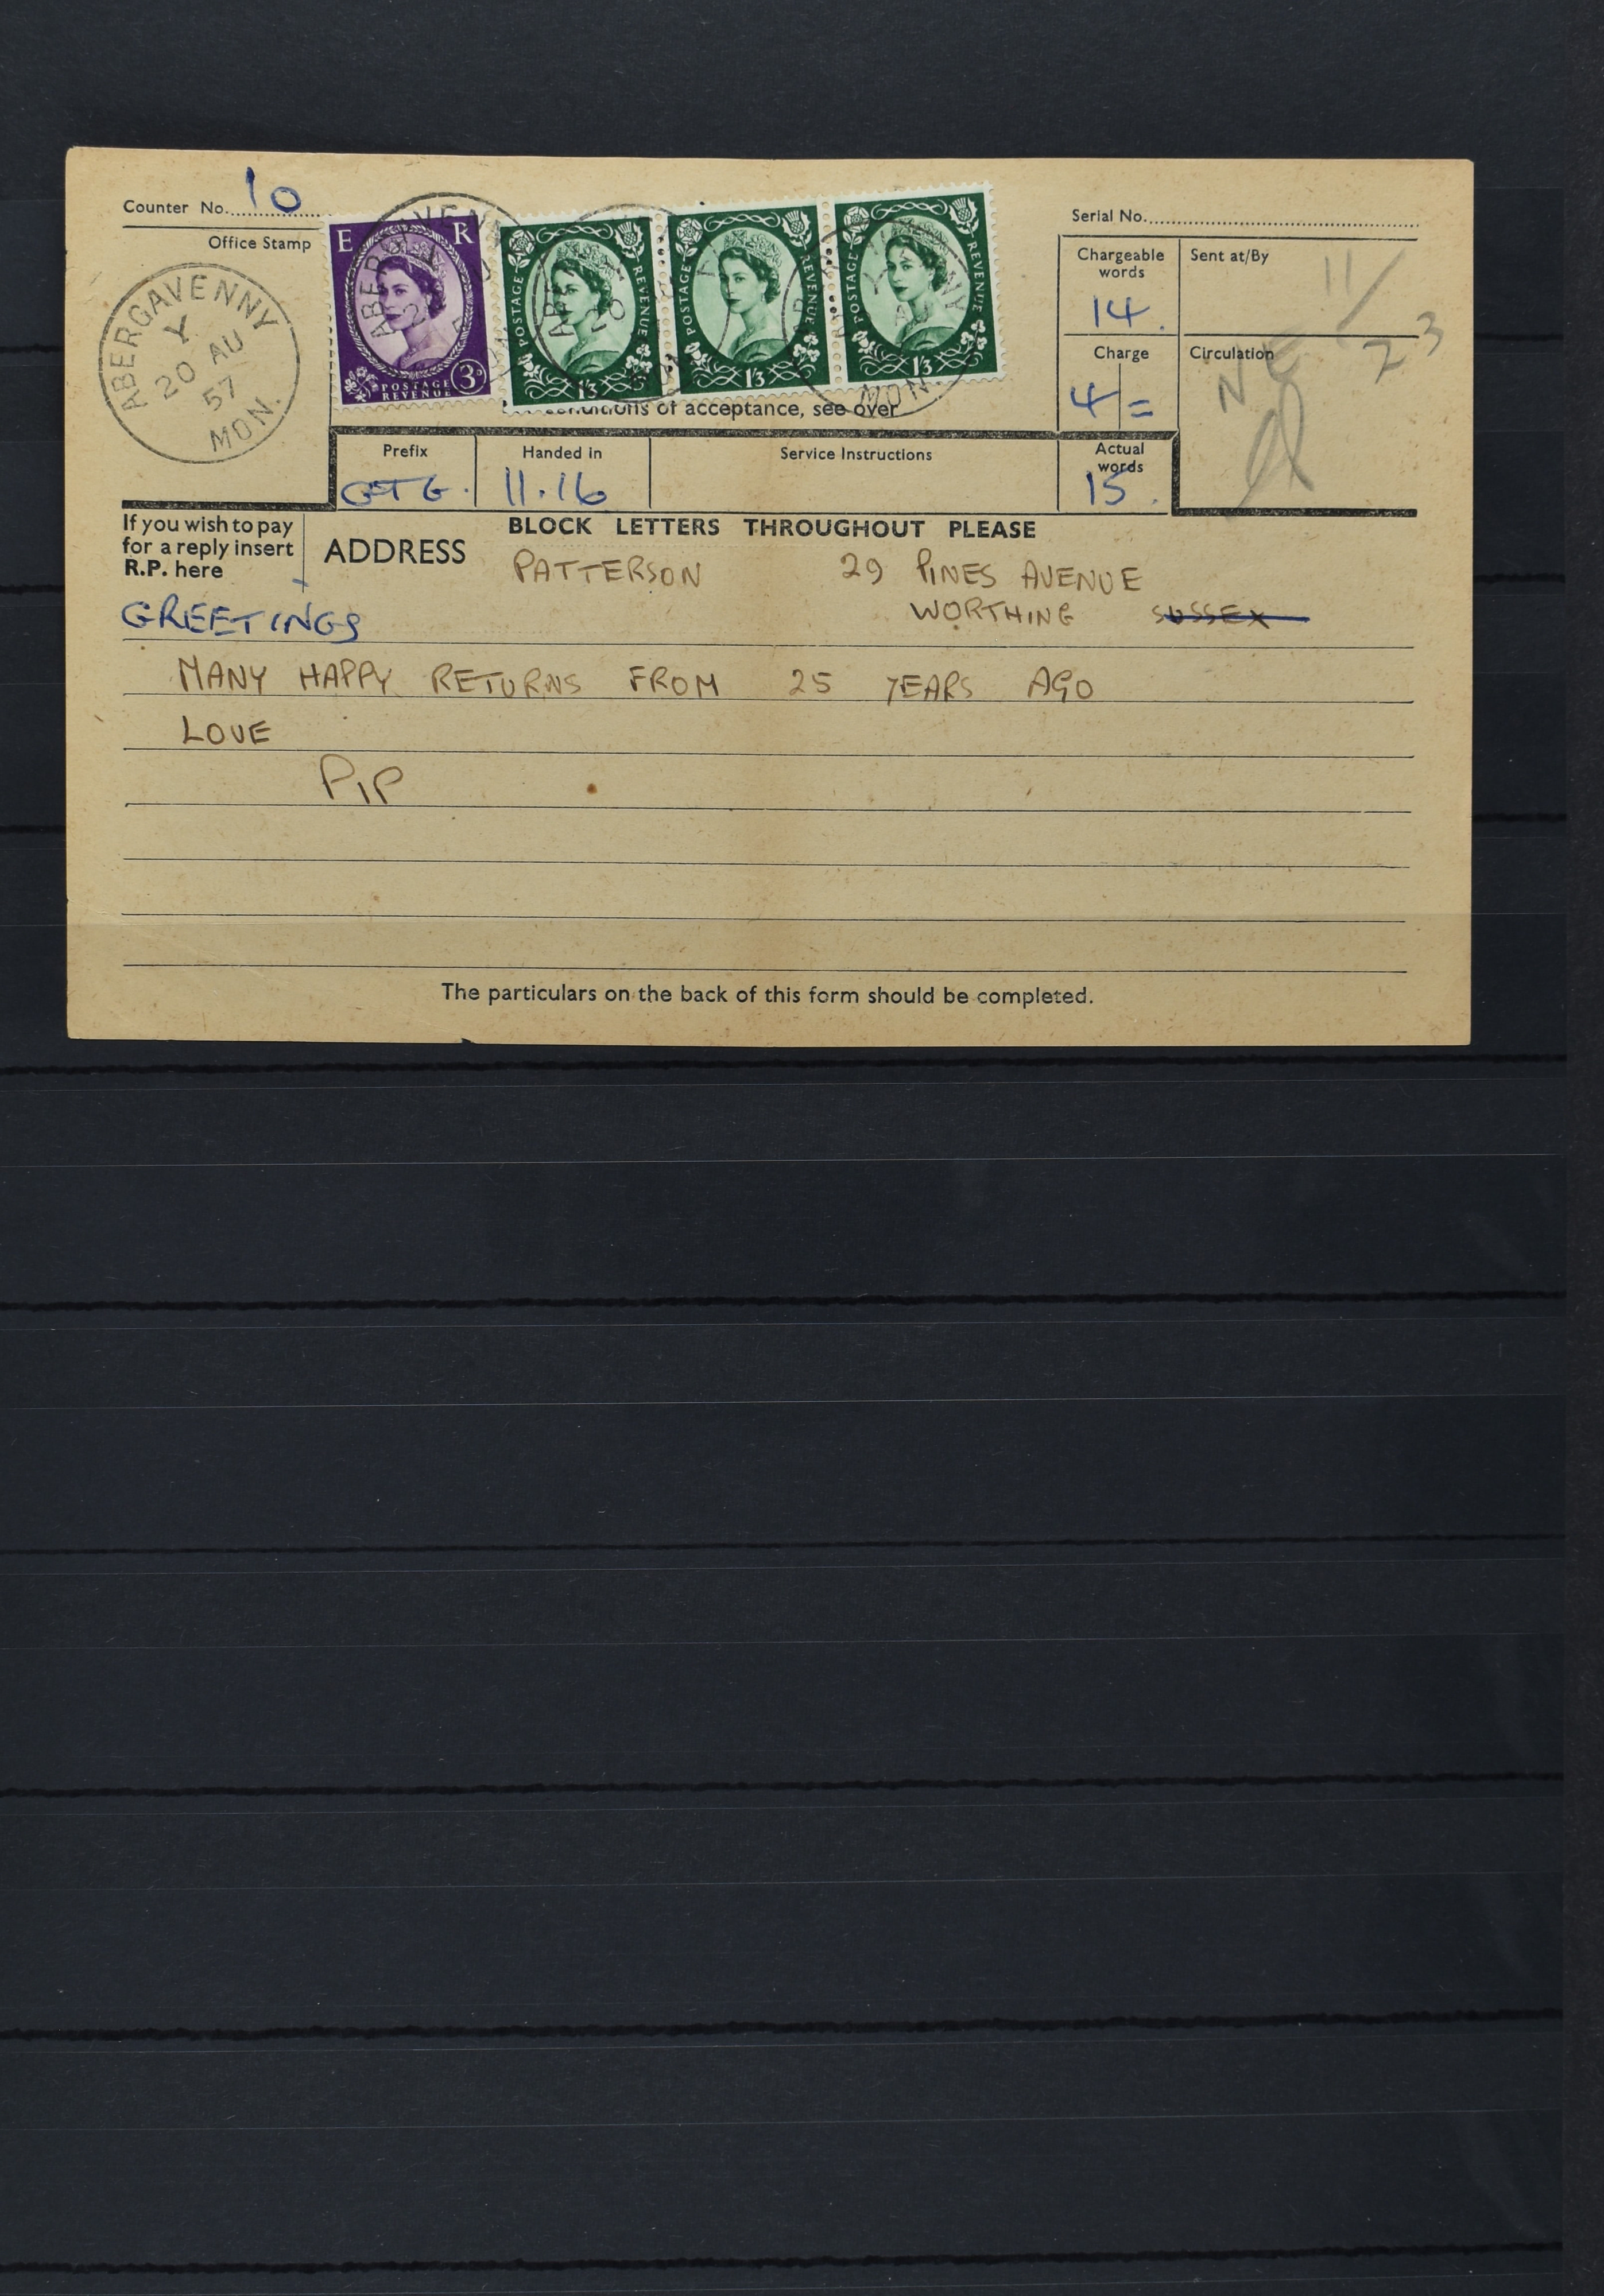 Counter No. 10
Office Stamp
ABERGAVENNY
Y
20 AU
57
MON.
E R
POSTAGE
REVENUE
3D
POSTAGE REVENUE
1/3
POSTAGE REVENUE
1/3
POSTAGE REVENUE
1/3
MON.
conditions of acceptance, see over
Serial No.
Chargeable words
14.
Sent at/By
11/
23
Charge
4/=
Circulation
NE
Prefix
GTG.
Handed in
11.16
Service Instructions
Actual words
15.
If you wish to pay
for a reply insert
R.P. here
BLOCK LETTERS THROUGHOUT PLEASE
ADDRESS
PATTERSON 29 PINES AVENUE
GREETINGS
WORTHING SUSSEX
MANY HAPPY RETURNS FROM 25 YEARS AGO
LOVE
PIP
The particulars on the back of this form should be completed.